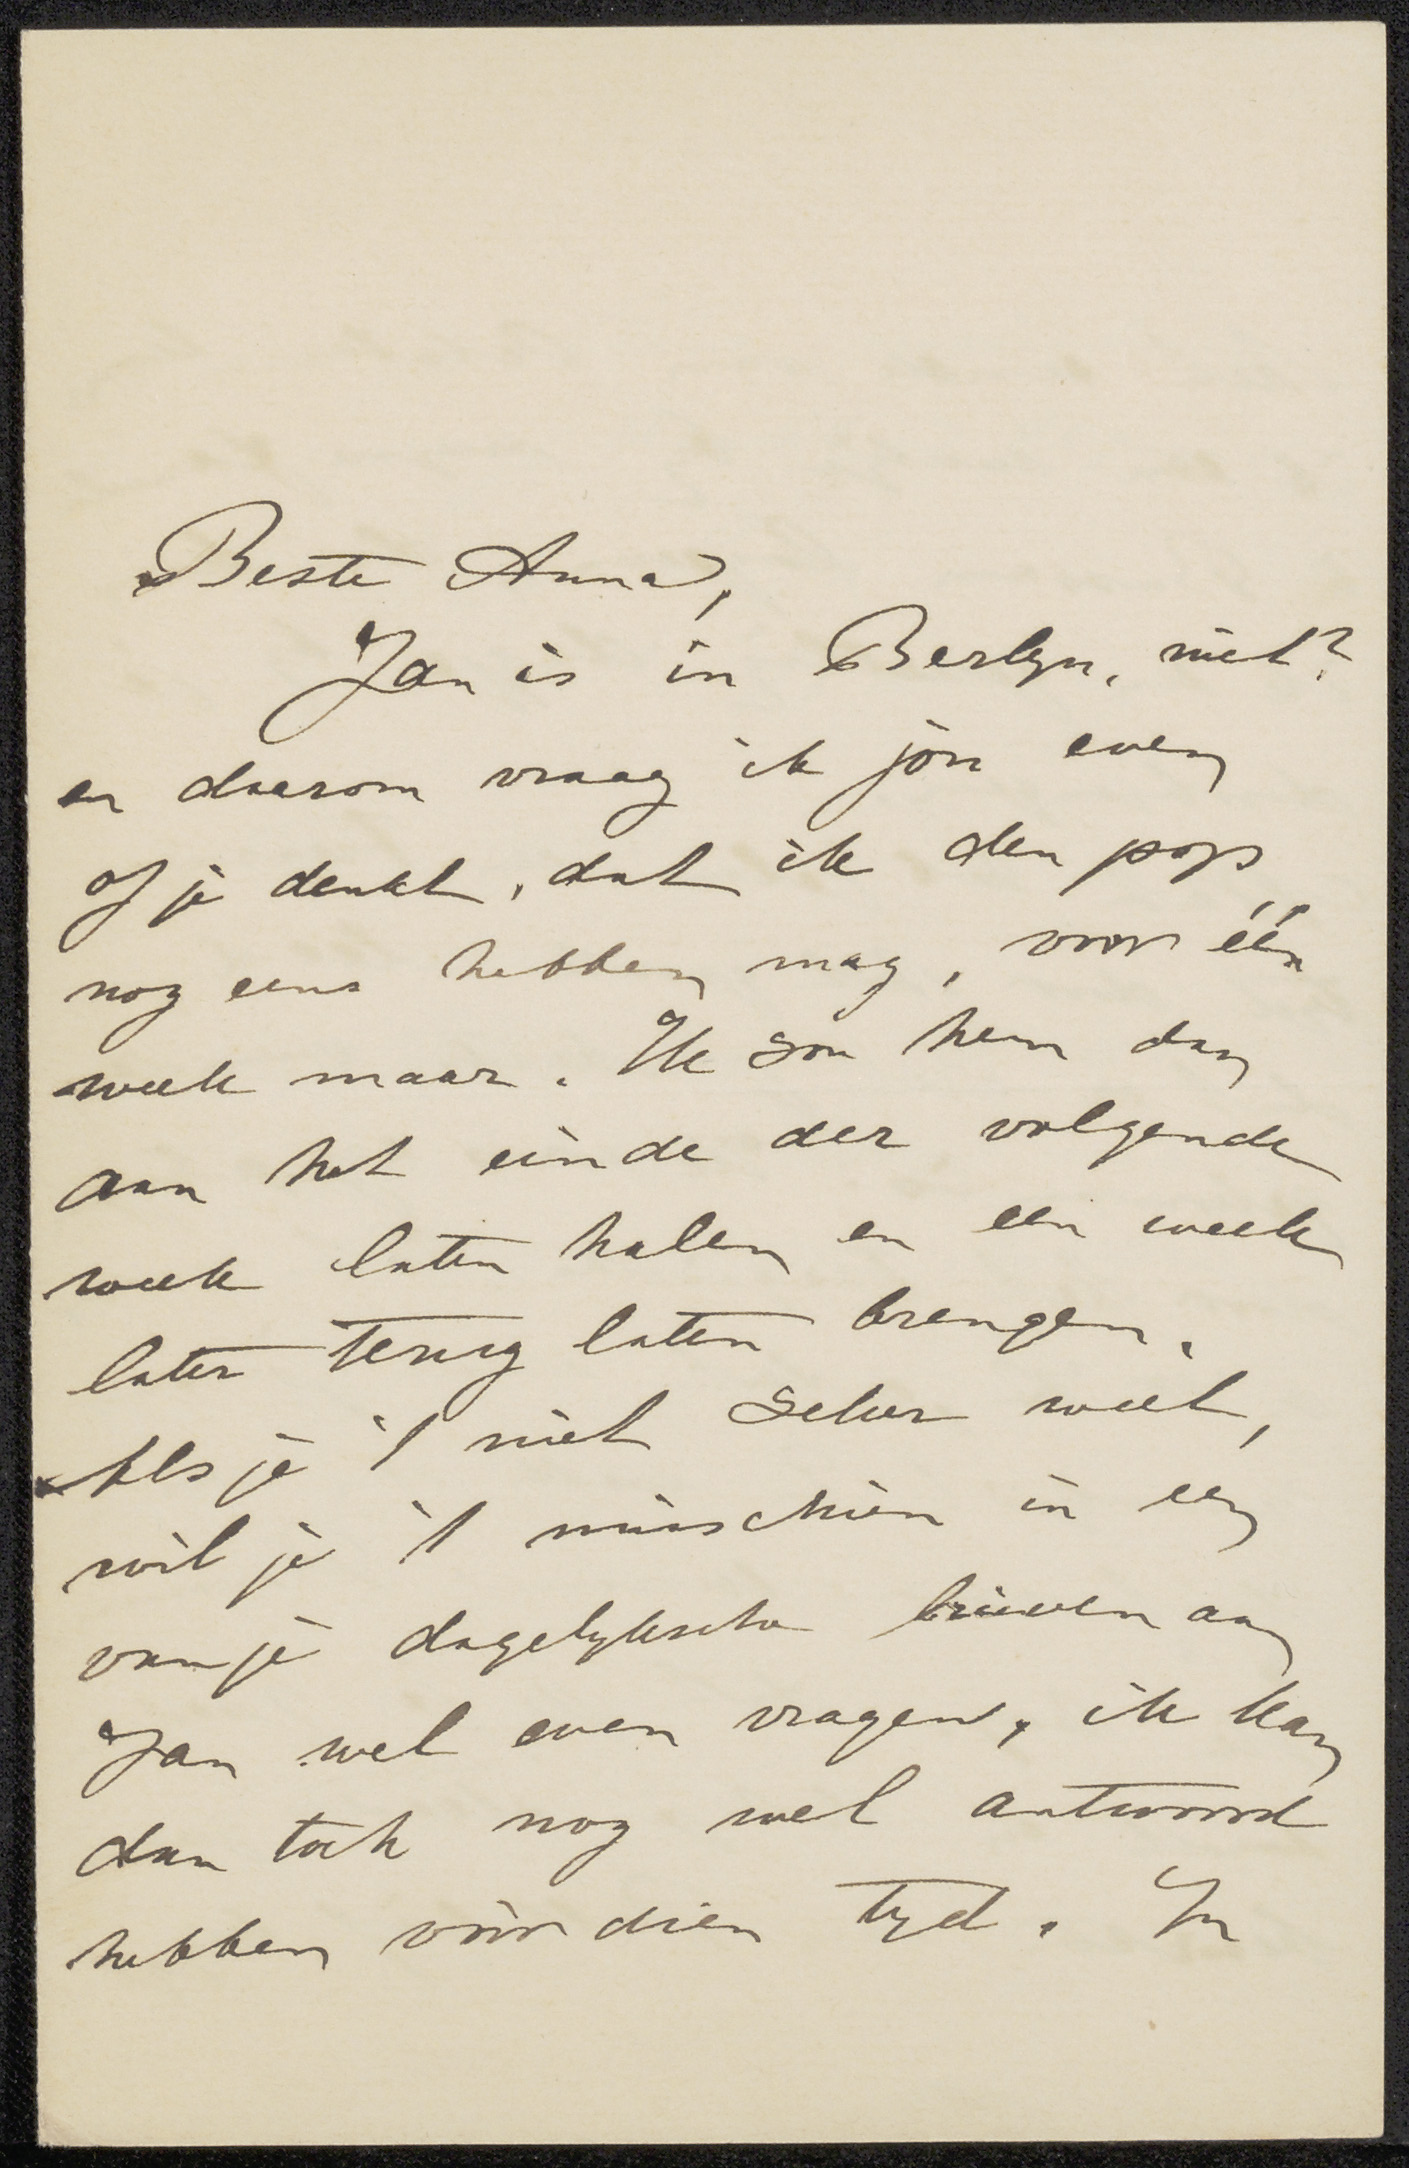 Beste Anna,
Jan is in Berlyn, niet?
en daarom vraag ik jou even
of je denkt, dat ik den pop
nog eens hebben mag, voor één
week maar. Ik sou hem dan
aan het einde der volgende
week laten halen en een week
later terug laten brengen.
Als je 't niet seker weet,
wil je 't misschien in een
van je dagelyksche brieven aan
Jan wel even vragen, ik kan
dan toch nog wel antwoord
hebben vóór dien tyd. In